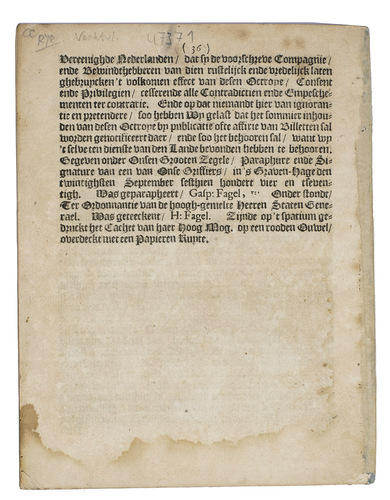 47371
( 36 )
Vereenighde Nederlanden / dat sy de voorschreve Compagnie /
ende Bewindthebberen van dien rustelijck ende vredelijck laten
ghebruycken 't volkomen effect van desen Octroye / Consent
ende Privilegien / cesserende alle Contradictien ende Empesche-
menten ter contrarie. Ende op dat niemandt hier van ignoran-
tie en pretendere / soo hebben Wy gelast dat het sommier inhou-
den van desen Octroye by publicatie ofte affixie van Billetten sal
worden genotificeert daer / ende soo het behooren sal / want wy
't selve ten dienste van den Lande bevonden hebben te behooren.
Gegeven onder Onsen Grooten Zegele / Paraphure ende Si-
gnature van een van Onse Griffiers / in 's Graven-Hage den
twintighsten September sesthien hondert vier en tseven-
tigh. Was geparapheert / Gasp: Fagel, vt. Onder stondt /
Ter Ordonnantie van de hoogh-gemelte Heeren Staten Gene-
rael. Was geteeckent / H: Fagel. Zijnde op't spatium ge-
druckt het Cachet van haer Hoog Mog. op een rooden Ouwel /
overdeckt met een Papieren Ruyte.